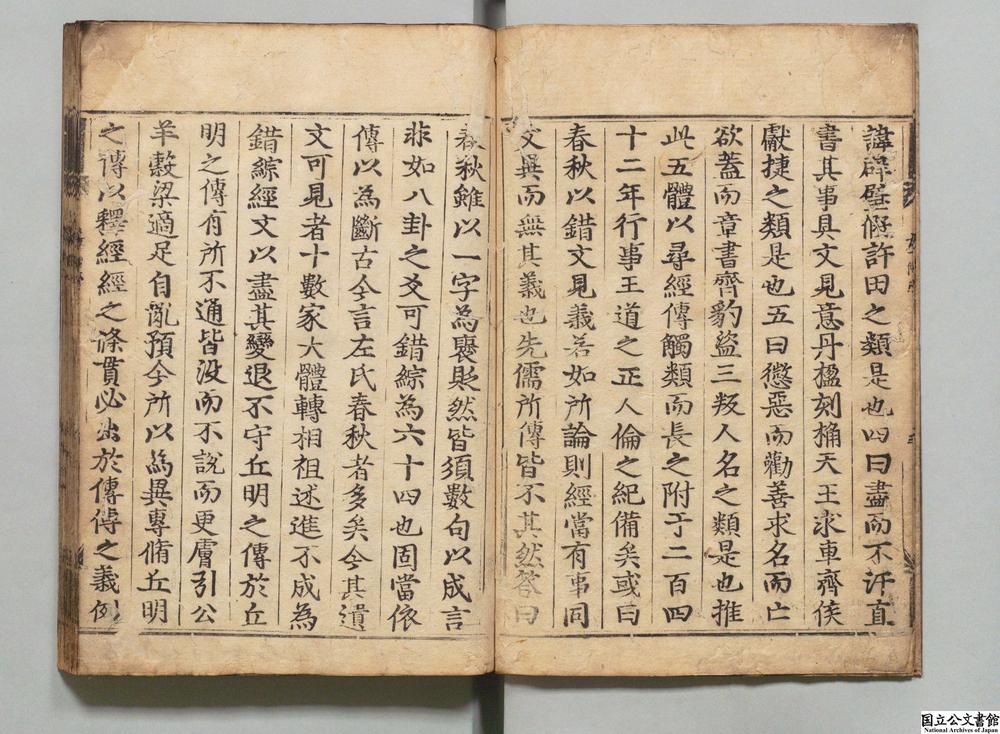 諱辟璧假許田之類是也四曰盡而不汙直
書其事具文見意丹楹刻桷天王求車齊侯
獻捷之類是也五曰懲惡而勸善求名而亡
欲蓋而章書齊豹盜三叛人名之類是也推
此五體以尋經傳觸類而長之附于二百四
十二年行事王道之正人倫之紀備矣或曰
春秋以錯文見義若如所論則經當有事同
文異而無其義也先儒所傳皆不其然答曰
春秋雖以一字為褒貶然皆須數句以成言
非如八卦之爻可錯綜為六十四也固當依
傳以為斷古今言左氏春秋者多矣今其遺
文可見者十數家大體轉相祖述進不成為
錯綜經文以盡其變退不守丘明之傳於丘
明之傳有所不通皆没而不說而更膚引公
羊穀梁適足自亂預今所以為異專脩丘明
之傳以釋經經之條貫必出於傳傳之義例
国立公文書館
National Archives of Japan